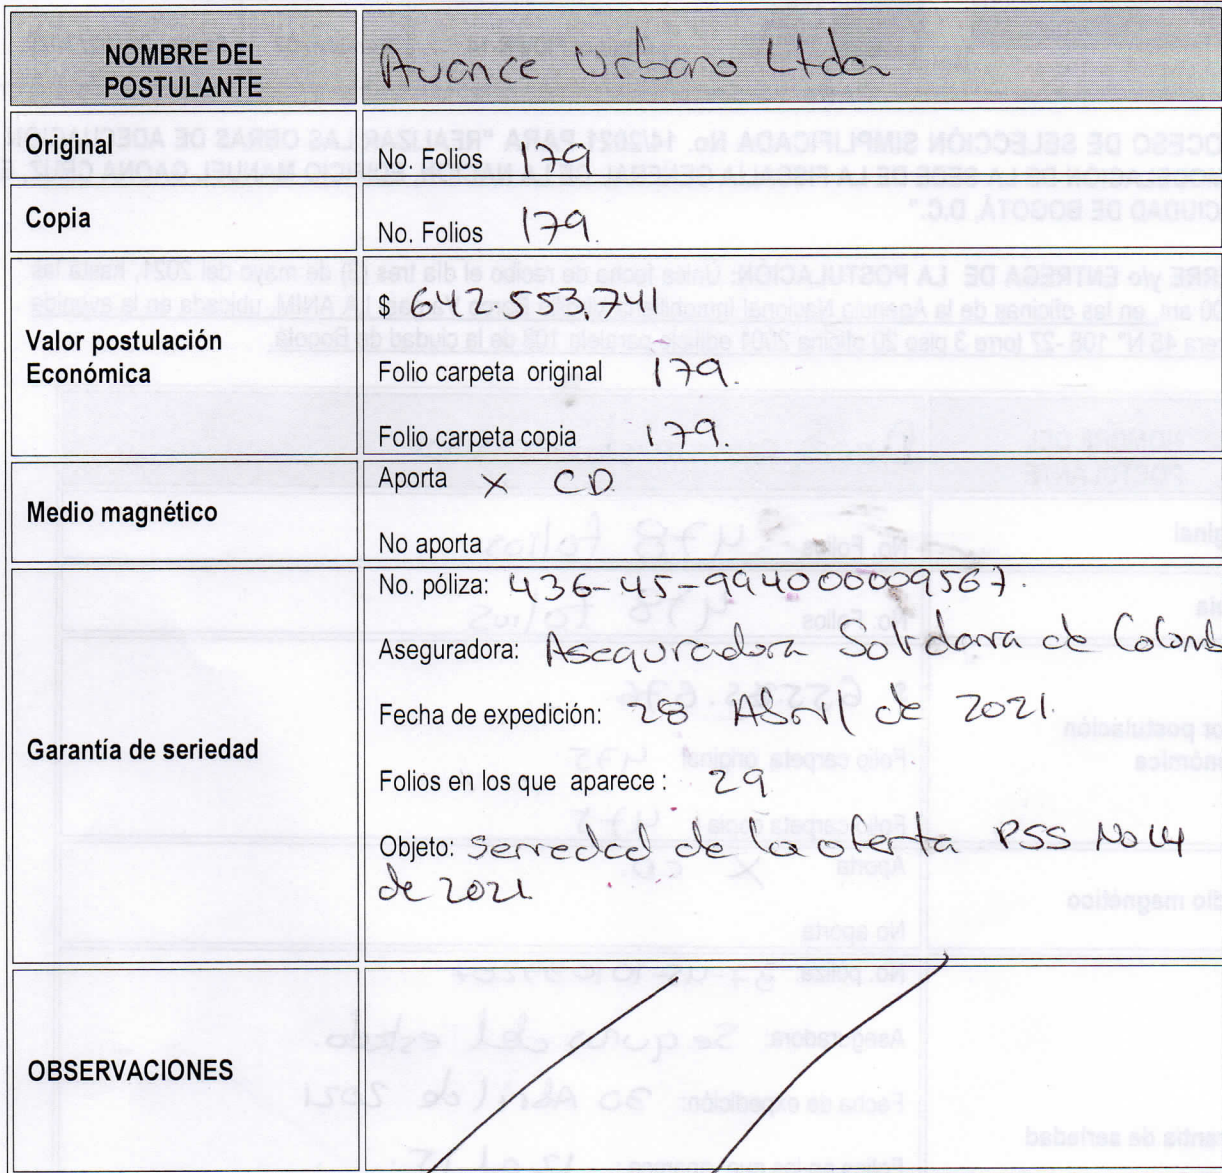 NOMBRE DEL
POSTULANTE
Avance Urbano Ltda
Original
No. Folios 179
Copia
No. Folios 179.
Valor postulación
Económica
$ 649.553.741
Folio carpeta original 179.
Folio carpeta copia 179.
Medio magnético
Aporta X CD.
No aporta
Garantía de seriedad
No. póliza: 436-45-994000009567.
Aseguradora: Aseguradora Solidaria de Colomb
Fecha de expedición: 28 Abril de 2021.
Folios en los que aparece : 29
Objeto: Seriedad de la oferta PSS No 14
de 2021
OBSERVACIONES